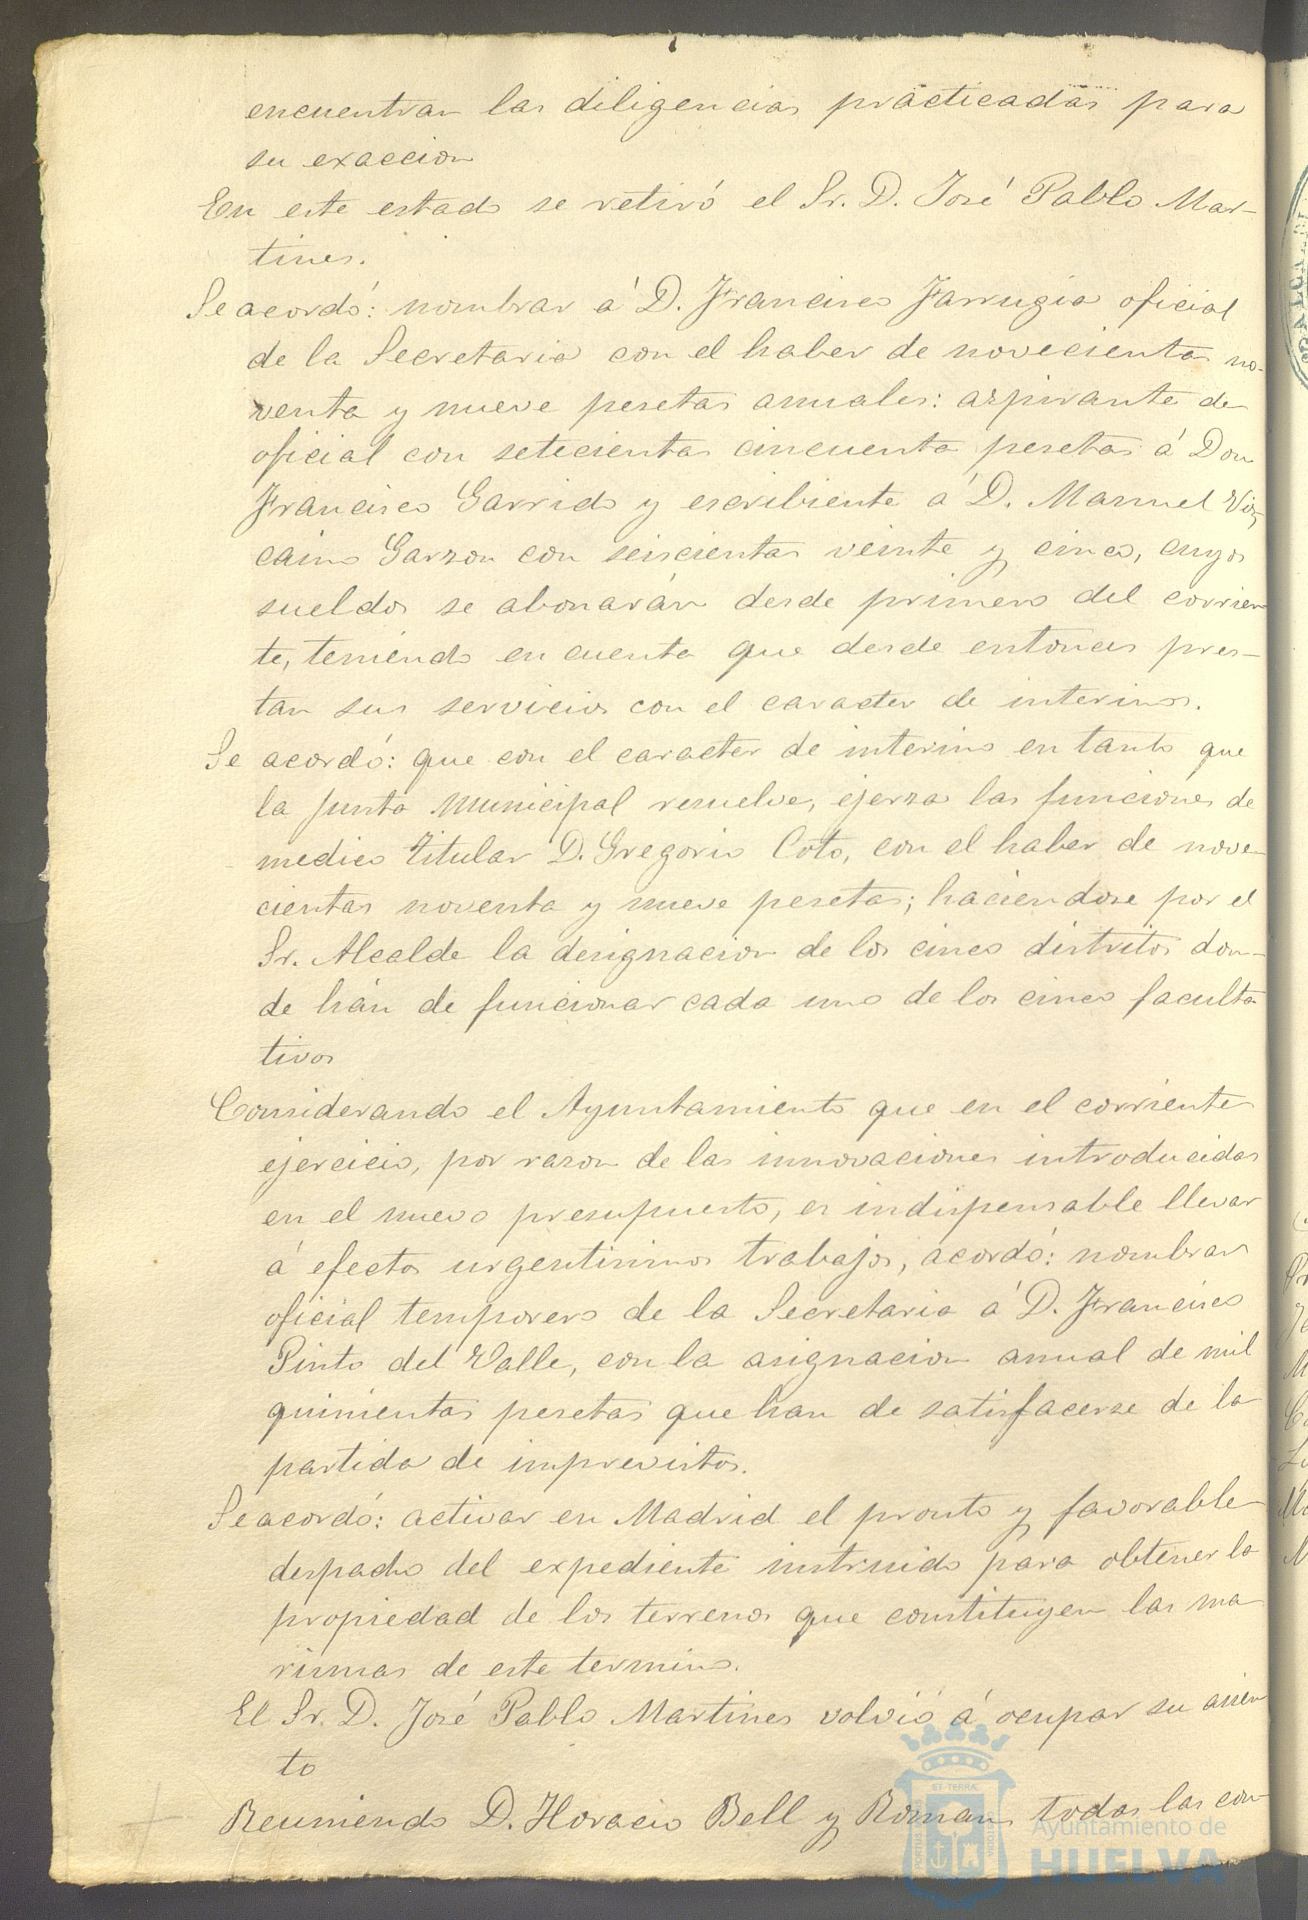 encuentran las diligencias practicadas para
su exaccion
En este estado se retiró el Sr. D. José Pablo Mar-
tines.
Se acordó: nombrar á D. Francisco Farrugia oficial
de la Secretaria con el haber de novecientas no-
venta y nueve pesetas anuales: aspirante de
oficial con setecientas cincuenta pesetas á Don
Francisco Garrido y escribiente á D. Manuel Viz
caino Garzon con seiscientas veinte y cinco, cuyos
sueldos se abonarán desde primero del corrien
te, teniendo en cuenta que desde entonces pres-
tan sus servicios con el caracter de interinos.
Se acordó: que con el caracter de interino en tanto que
la Junta Municipal resuelve, ejerza las funciones de
medico titular D. Gregorio Coto, con el haber de nove-
cientas noventa y nueve pesetas; haciendose por el
Sr. Alcalde la designacion de los cinco distritos don-
de hán de funcionar cada uno de los cinco faculta
tivos
Considerando el Ayuntamiento que en el corriente
ejercicio, por razon de las innovaciones introducidas
en el nuevo presupuesto, es indispensable llevar
á efecto urgentisimos trabajos, acordó: nombrar
oficial temporero de la Secretaria á D. Francisco
Pinto del Valle, con la asignacion anual de mil
quinientas pesetas que han de satisfacerse de la
partida de imprevistos.
Se acordó: activar en Madrid el pronto y favorable
despacho del expediente instruido para obtener la
propiedad de los terrenos que constituyen las ma
rismas de este termino.
El Sr. D. José Pablo Martines volvió á ocupar su asien
to
Reuniendo D. Horacio Bell y Roman todas las con
Ayuntamiento de
HUELVA